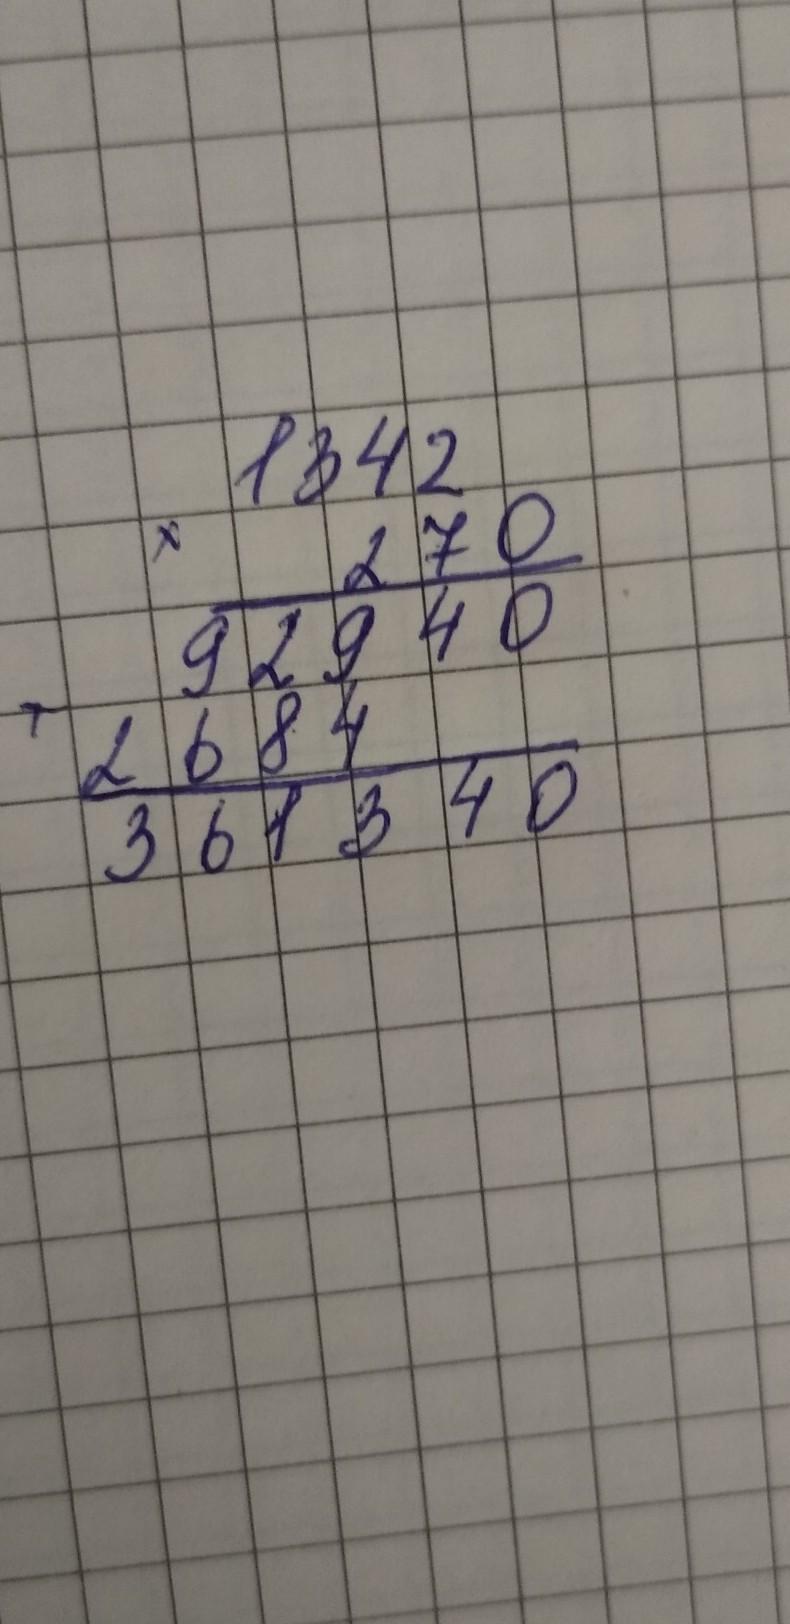 1342
× 270
92940
+ 2684
361340